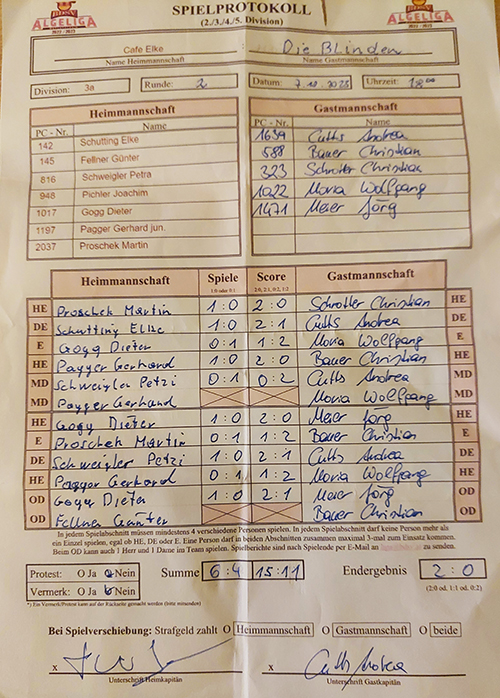 SPIELPROTOKOLL
(2./3./4./5. Division)
ALGELIGA ALGELIGA
2022 / 2023 2022 / 2023
Cafe Elke : Die Blinden
Name Heimmannschaft Name Gastmannschaft
Division: 3a Runde: 2 Datum: Uhrzeit: 18 00
Heimmannschaft Gastmannschaft
PC - Nr. Name PC - Nr. Name
142 Schutting Elke 1639 Cutts Andrea
145 Fellner Günter 588 Bauer Christian
816 Schweigler Petra 323 Schrotter Christian
948 Pichler Joachim 1022 Moria Wolfgang
1017 Gogg Dieter 1471 Meier Jörg
1197 Pagger Gerhard jun.
2037 Proschek Martin
Heimmannschaft Spiele Score Gastmannschaft
1:0 oder 0:1 2:0, 2:1, 0:2, 1:2
HE Proschek Martin 1:0 2:0 Schrotter Christian HE
DE Schutting Elke 1:0 2:1 Cutts Andrea DE
E Gogg Dieter 0:1 1:2 Moria Wolfgang E
HE Pagger Gerhard 1:0 2:0 Bauer Christian HE
MD Schweigler Petzi 0:1 0:2 Cutts Andrea MD
MD Pagger Gerhard Moria Wolfgang MD
HE Gogg Dieter 1:0 2:0 Meier Jörg HE
E Proschek Martin 0:1 1:2 Bauer Christian E
DE Schweigler Petzi 1:0 2:1 Cutts Andrea DE
HE Pagger Gerhard 0:1 1:2 Moria Wolfgang HE
OD Gogg Dieter 1:0 2:1 Meier Jörg OD
OD Fellner Günter Bauer Christian OD
In jedem Spielabschnitt müssen mindestens 4 verschiedene Personen spielen. In jedem Spielabschnitt darf keine Person mehr als
ein Einzel spielen, egal ob HE, DE oder E. Eine Person darf in beiden Abschnitten zusammen maximal 3-mal zum Einsatz kommen.
Beim OD kann auch 1 Herr und 1 Dame im Team spielen. Spielberichte sind nach Spielende per E-Mail an zu senden.
Protest: O Ja O Nein Summe 6:4 15:11 Endergebnis 2:0
Vermerk: O Ja O Nein (2:0 od. 1:1 od. 0:2)
*) Ein Vermerk/Protest kann auf der Rückseite gemacht werden (bitte ankreuzen)
Bei Spielverschiebung: Strafgeld zahlt O Heimmannschaft O Gastmannschaft O beide
x x Cutts Andrea
Unterschrift Heimkapitän Unterschrift Gastkapitän